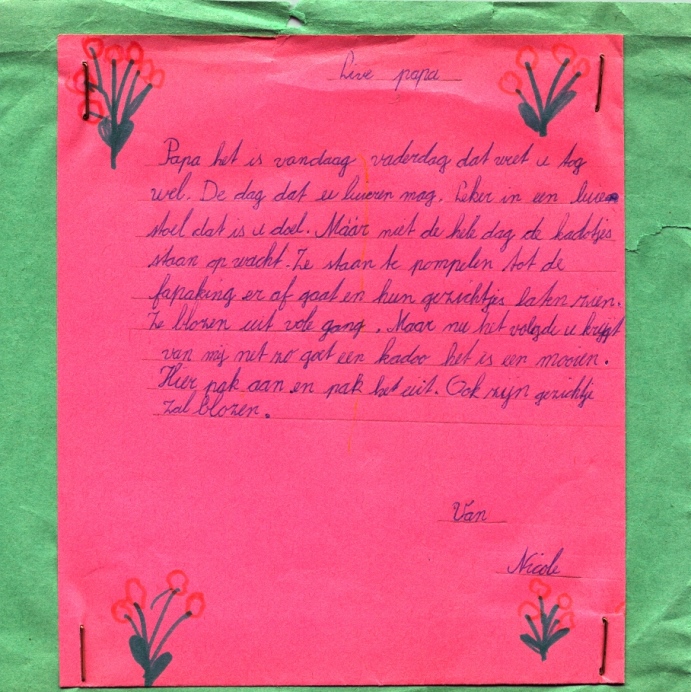 Live papa
Papa het is vandaag vaderdag dat weet u tog
wel. De dag dat u luieren mag. Leker in een luie
stoel dat is u doel. Máár niet de hele dag de kadotjes
staan op wacht. Ze staan te pompelen tot de
fapaking er af gaat en hun gezichtjes laten zien.
Ze blozen uit vole gang. Maar nu het volgde u krijgt
van mij net zo goet een kadoo het is een mooien.
Hier pak aan en pak het uit. Ook zijn gezichtje
zal blozen.
Van
Nicole